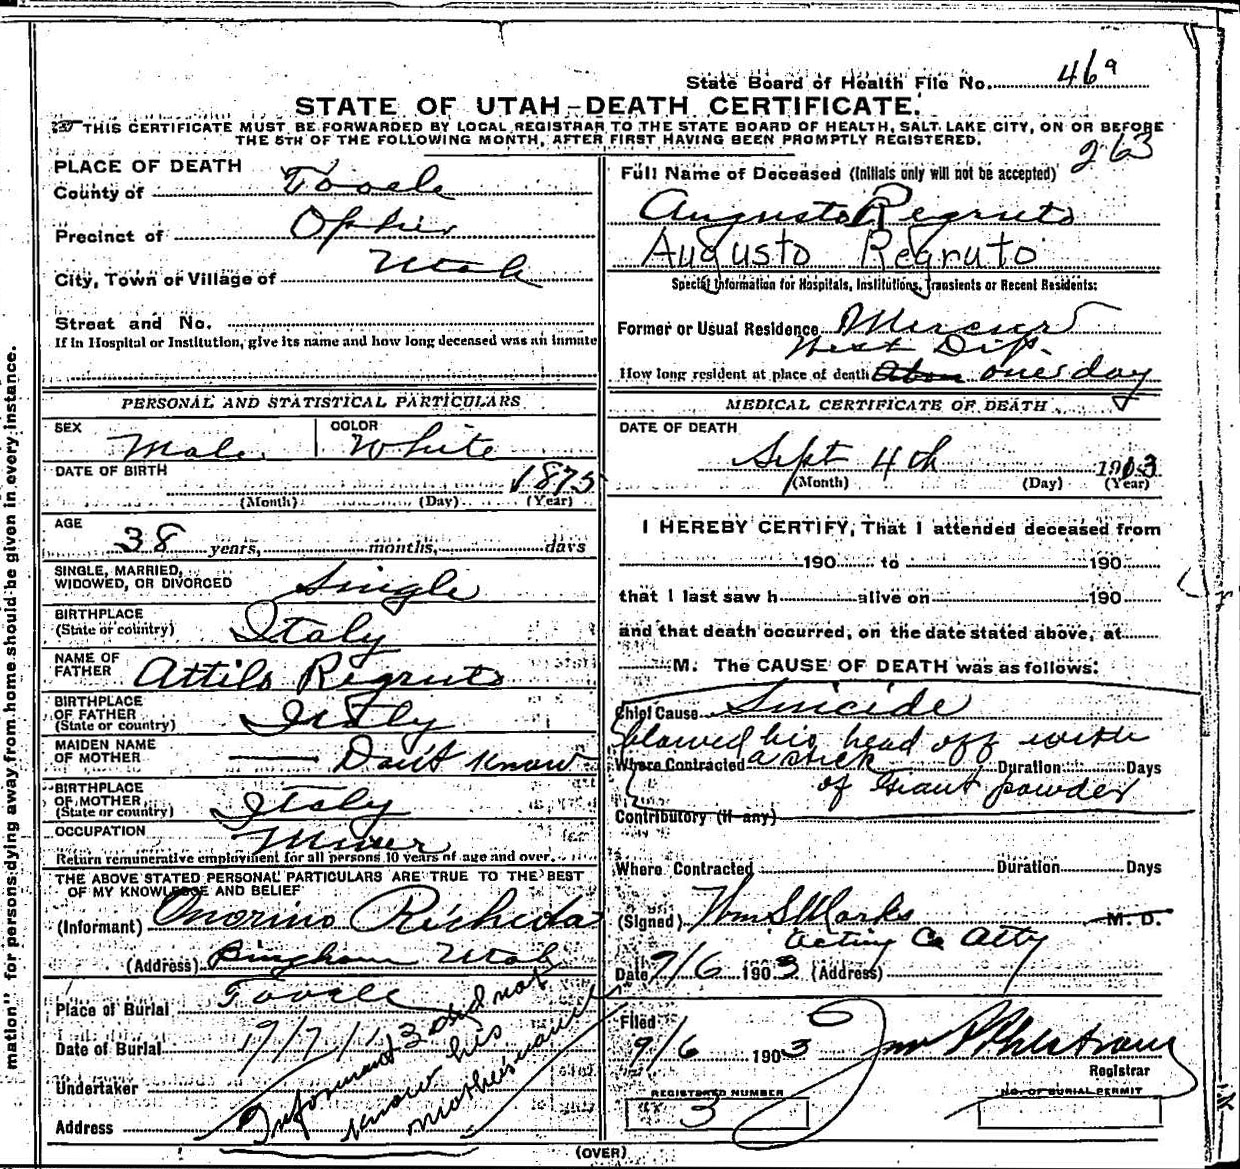 State Board of Health File No. 469
STATE OF UTAH-DEATH CERTIFICATE.
THIS CERTIFICATE MUST BE FORWARDED BY LOCAL REGISTRAR TO THE STATE BOARD OF HEALTH, SALT LAKE CITY, ON OR BEFORE
THE 5TH OF THE FOLLOWING MONTH, AFTER FIRST HAVING BEEN PROMPTLY REGISTERED.
263
PLACE OF DEATH
County of Tooele
Precinct of Ophir
City, Town or Village of Utah
Street and No.
If in Hospital or Institution, give its name and how long deceased was an inmate
PERSONAL AND STATISTICAL PARTICULARS
SEX Male COLOR White
DATE OF BIRTH 1875
(Month) (Day) (Year)
AGE
38 years, months, days
SINGLE, MARRIED,
WIDOWED, OR DIVORCED Single
BIRTHPLACE
(State or country) Italy
NAME OF
FATHER Attilo Regruto
BIRTHPLACE
OF FATHER
(State or country) Italy
MAIDEN NAME
OF MOTHER Don't Know
BIRTHPLACE
OF MOTHER,
(State or country) Italy
OCCUPATION Miner
Return remunerative employment for all persons 10 years of age and over.
THE ABOVE STATED PERSONAL PARTICULARS ARE TRUE TO THE BEST
OF MY KNOWLEDGE AND BELIEF
(Informant) Onorino Richeda
(Address) Bingham Utah
Place of Burial Tooele
Date of Burial 9/7/13
Undertaker
Address
Informant did not
know his
mother's name
Full Name of Deceased (Initials only will not be accepted)
Augusto Regruto
Augusto Regruto
Special Information for Hospitals, Institutions, Transients or Recent Residents:
Former or Usual Residence Mercur
West Dip.
How long resident at place of death one day
MEDICAL CERTIFICATE OF DEATH
DATE OF DEATH
Sept 4th 1913
(Month) (Day) (Year)
I HEREBY CERTIFY, That I attended deceased from
190 to 190
that I last saw h alive on 190
and that death occurred, on the date stated above, at
M. The CAUSE OF DEATH was as follows:
Chief Cause Suicide
blowed his head off with
Where Contracted a stick Duration Days
of Giant powder
Contributory (if any)
Where Contracted Duration Days
(Signed) Wm S Marks M. D.
Acting Co Atty
Date 9/6 1903 (Address)
Filed
9/6 1903
Registrar
REGISTERED NUMBER
3
NO. OF BURIAL PERMIT
(OVER)
mation" for persons dying away from home should be given in every instance.